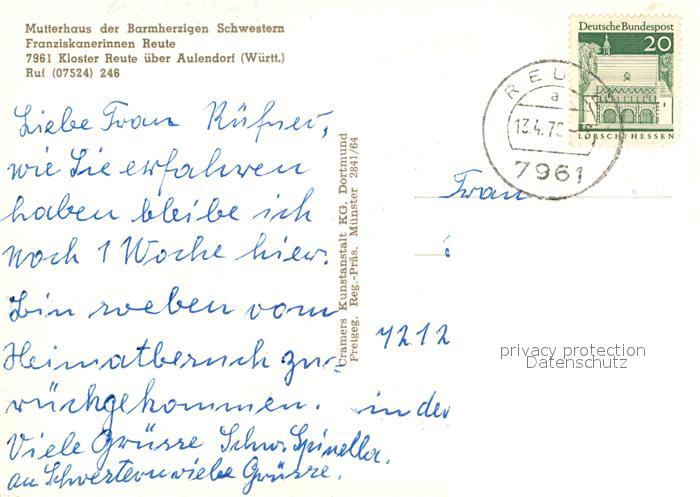 Mutterhaus der Barmherzigen Schwestern
Franziskanerinnen Reute
7961 Kloster Reute über Aulendorf (Württ.)
Ruf (07524) 246
Deutsche Bundespost
20
LORSCH/HESSEN
REU
a
13.4.7
7961
Liebe Frau Küfner,
wie Sie erfahren
haben bleibe ich
noch 1 Woche hier.
Bin soeben vom
Heimatbesuch zu-
rückgekommen.
Viele Grüsse Schw. Spinella.
an Schwestern viele Grüsse.
Cramers Kunstanstalt KG, Dortmund
Freigeg. Reg.-Präs. Münster 2841/64
Frau
7212
in der
privacy protection
Datenschutz